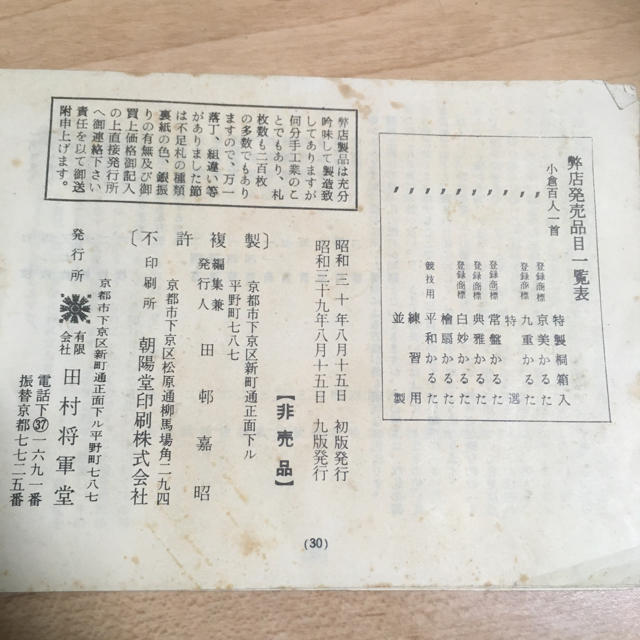 弊店発売品目一覧表
小倉百人一首 特製桐箱入
〃 登録商標 京美かるた
〃 登録商標 九重かるた
〃 特選
〃 登録商標 常盤かるた
〃 登録商標 典雅かるた
〃 登録商標 白妙かるた
〃 檜扇かるた
〃 競技用 平和かるた
〃 練習用
〃 並製
弊店製品は充分
吟味して製造致
してありますが
何分手工業のこ
とでもあり、札
枚数も二百枚
の多数でもあり
ますので、万一
落丁、組違い等
がありました節
は不足札の種類
裏紙の色、銀振
りの有無及び御
買上価格御記入
の上直接発行所
へ御連絡下さい
責任を以て御送
附申上げます。
昭和三十年八月十五日 初版発行
昭和三十九年八月十五日 九版発行
【非売品】
〔不許複製〕
京都市下京区新町通正面下ル
平野町七八七
編集兼
発行人 田邨嘉昭
京都市下京区松原通柳馬場角二九四
印刷所 朝陽堂印刷株式会社
京都市下京区新町通正面下ル平野町七八七
発行所 有限会社 田村将軍堂
電話下㊲一六九一番
振替京都七七二五番
(30)